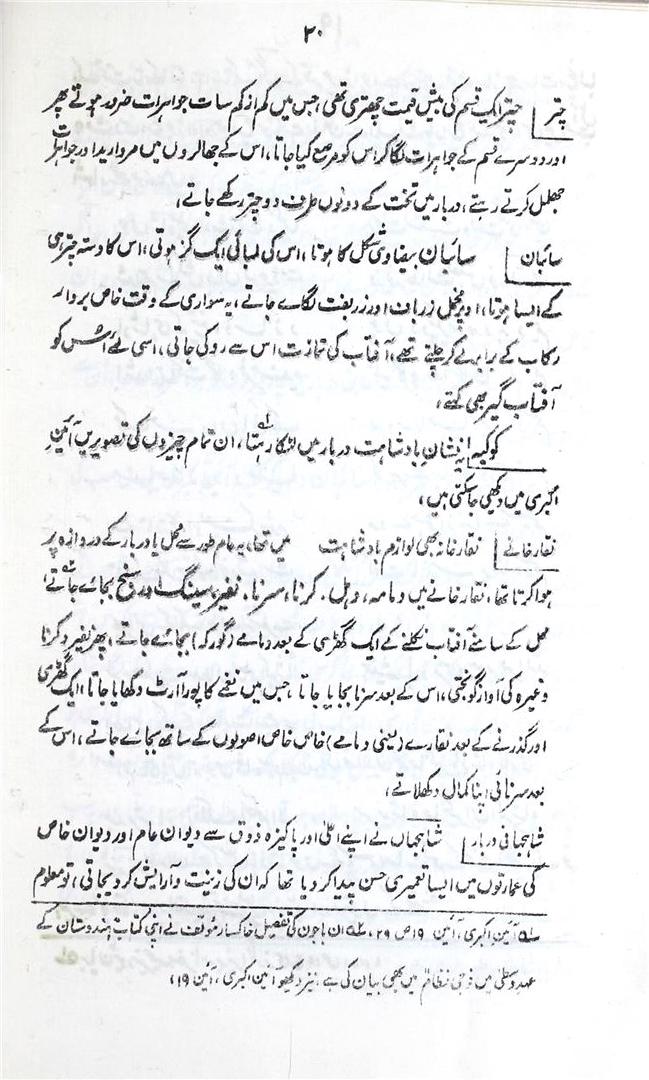 ۲۰
چتر چتر ایک قسم کی بیش قیمت چھتری تھی، جس میں کم از کم سات جواہرات ضرور ہوتے پھر
اور دوسرے قسم کے جواہرات لگا کر اس کو مرصع کیا جاتا، اس کے جھالروں میں مروارید اور جواہرات
جھلمل کرتے رہتے، دربار میں تخت کے دونوں طرف دو چتر رکھے جاتے،
سائبان سائبان بیضاوی شکل کا ہوتا، اس کی لمبائی ایک گز ہوتی، اس کا دستہ چتر ہی
کے ایسا ہوتا، اوپر مخمل زرباف اور زربفت لگائے جاتے، یہ سواری کے وقت خاص بردار
رکاب کے برابر لے کر چلتے تھے، آفتاب کی تمازت اس سے روکی جاتی، اسی لئے اس کو
آفتاب گیر بھی کہتے،
کوکبہ یہ نشانِ بادشاہت دربار میں لٹکا رہتا، ان تمام چیزوں کی تصویریں آئینِ
اکبری میں دیکھی جا سکتی ہیں،
نقار خانے نقار خانہ بھی لوازم بادشاہت میں تھا، یہ عام طور سے محل یا دربار کے دروازہ پر
ہوا کرتا تھا، نقار خانے میں دمامہ، دہل، کرنا، سرنا، نفیر، سینگ اور سنج بجائے جاتے،
محل کے سامنے آفتاب نکلنے کے ایک گھڑی کے بعد دمامے (گورکہ) بجائے جاتے، پھر نفیر و کرنا
وغیرہ کی آواز گونجتی، اس کے بعد سرنا بجایا جاتا جس میں نغمے کا پورا آرٹ دکھایا جاتا، ایک گھڑی
اور گذرنے کے بعد نقارے (یعنی دمامے) خاص خاص اصولوں کے ساتھ بجائے جاتے، اس کے
بعد سرنائی اپنا کمال دکھلاتے،
شاہجہانی دربار شاہجہاں نے اپنے اعلیٰ اور پاکیزہ ذوق سے دیوان عام اور دیوان خاص
کی عمارتوں میں ایسا تعمیری حسن پیدا کر دیا تھا کہ ان کی زینت و آرایش کر دیجاتی، تو معلوم
لہ آئین اکبری، آئین ۱۹ ص ۲۹، ان باجوں کی تفصیل خاکسار مؤلف نے اپنی کتاب ہندوستان کے
عہد وسطیٰ میں فوجی نظام میں بھی بیان کی ہے، نیز دیکھو آئین اکبری، آئین ۱۹،